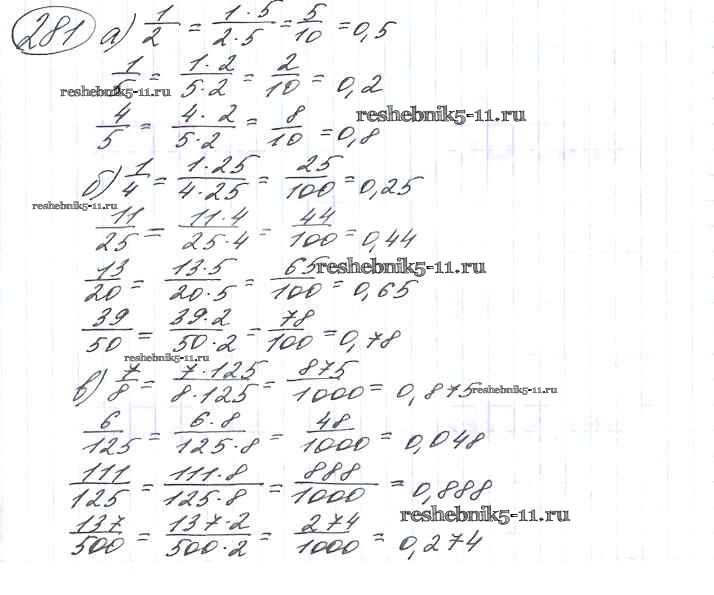 281 а) 1/2 = 1·5/2·5 = 5/10 = 0,5
1/5 = 1·2/5·2 = 2/10 = 0,2
reshebnik5-11.ru
4/5 = 4·2/5·2 = 8/10 = 0,8
reshebnik5-11.ru
б) 1/4 = 1·25/4·25 = 25/100 = 0,25
reshebnik5-11.ru
11/25 = 11·4/25·4 = 44/100 = 0,44
13/20 = 13·5/20·5 = 65/100 = 0,65
reshebnik5-11.ru
39/50 = 39·2/50·2 = 78/100 = 0,78
reshebnik5-11.ru
в) 7/8 = 7·125/8·125 = 875/1000 = 0,875
reshebnik5-11.ru
6/125 = 6·8/125·8 = 48/1000 = 0,048
111/125 = 111·8/125·8 = 888/1000 = 0,888
reshebnik5-11.ru
137/500 = 137·2/500·2 = 274/1000 = 0,274